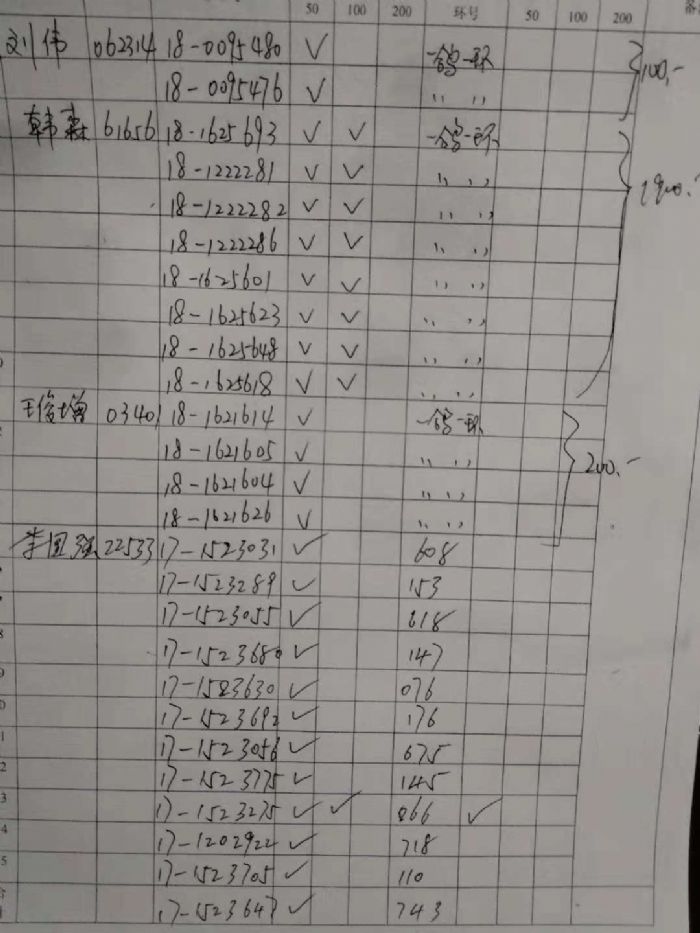 50 100 200 环号 50 100 200
刘伟 062314 18-0095480 ✓ 一鸽一环 100,-
18-0095476 ✓ 〃 〃
韩 61656 18-1625693 ✓ ✓ 一鸽一环
18-1222281 ✓ ✓ 〃 〃
18-1222282 ✓ ✓ 〃 〃
18-1222286 ✓ ✓ 〃 〃
18-1625601 ✓ ✓ 〃 〃
18-1625623 ✓ ✓ 〃 〃
18-1625648 ✓ ✓ 〃 〃
18-1625618 ✓ ✓ 〃 〃
王俊增 03401 18-1621614 ✓ 一鸽一环
18-1621605 ✓ 〃 〃 200,-
18-1621604 ✓ 〃 〃
18-1621626 ✓ 〃 〃
李国强 22533 17-1523031 ✓ 608
17-1523289 ✓ 153
17-1523055 ✓ 618
17-1523680 ✓ 147
17-1523630 ✓ 076
17-1523692 ✓ 176
17-1523056 ✓ 675
17-1523775 ✓ 145
17-1523275 ✓ ✓ 066 ✓
17-1202922 ✓ 718
17-1523705 ✓ 110
17-1523647 ✓ 743